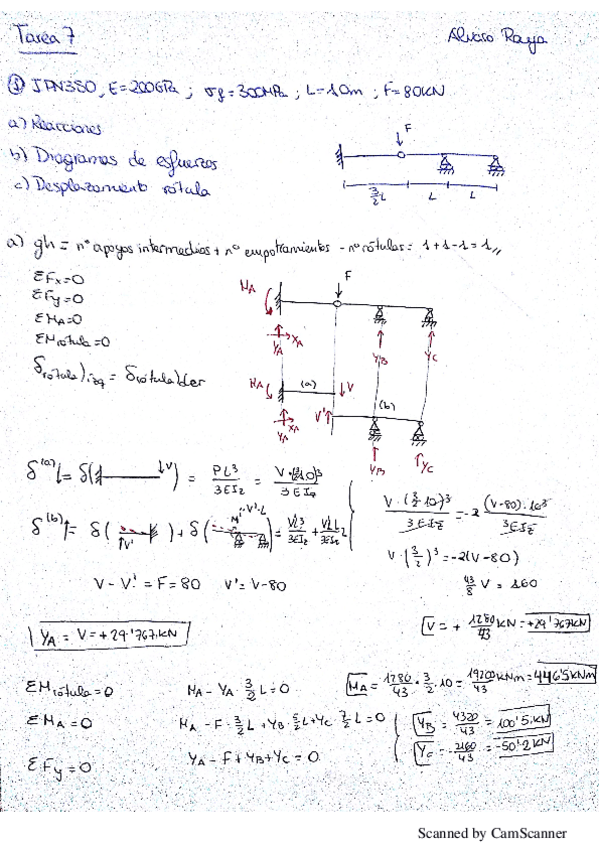 Tarea 7
Alvaro Raya
① IPN380, E=200GPa ; σf=300MPa ; L=10m ; F=80KN
a) Reacciones
b) Diagramas de esfuerzos
c) Desplazamiento rótula
F
3/2 L L L
a) gh = nº apoyos intermedios + nº empotramientos - nº rótulas = 1+1-1=1,,
ΣFx=0
ΣFy=0
ΣMA=0
ΣMrótula=0
δrótula)izq = δrótula)der
F
MA
XA
YA
YB
YC
MA
(a)
V
XA
YA
V'
(b)
YB
YC
δ(a)↓= δ( ↓V ) = PL³/3EIz = V·(3/2·10)³/3EIz
δ(b)↑= δ( ↑V' ) + δ( M=V'·L ) = V'L³/3EIz + V'L·L²/3EIz
V·(3/2·10)³/3EIz = -2 (V-80)·10³/3EIz
V·(3/2)³ = -2(V-80)
43/8 V = 160
V = + 1280/43 KN = +29'767KN
V - V' = F = 80 V' = V-80
YA = V = +29'767KN
ΣMrótula=0 MA - YA 3/2 L = 0
MA = 1280/43 · 3/2 · 10 = 19200/43 KNm = 446'5KNm
ΣMA=0 MA - F·3/2 L + YB 5/2 L + YC 7/2 L = 0
YB = 4320/43 = 100'5KN
YC = -2160/43 = -50'2KN
ΣFy=0 YA - F + YB + YC = 0
Scanned by CamScanner